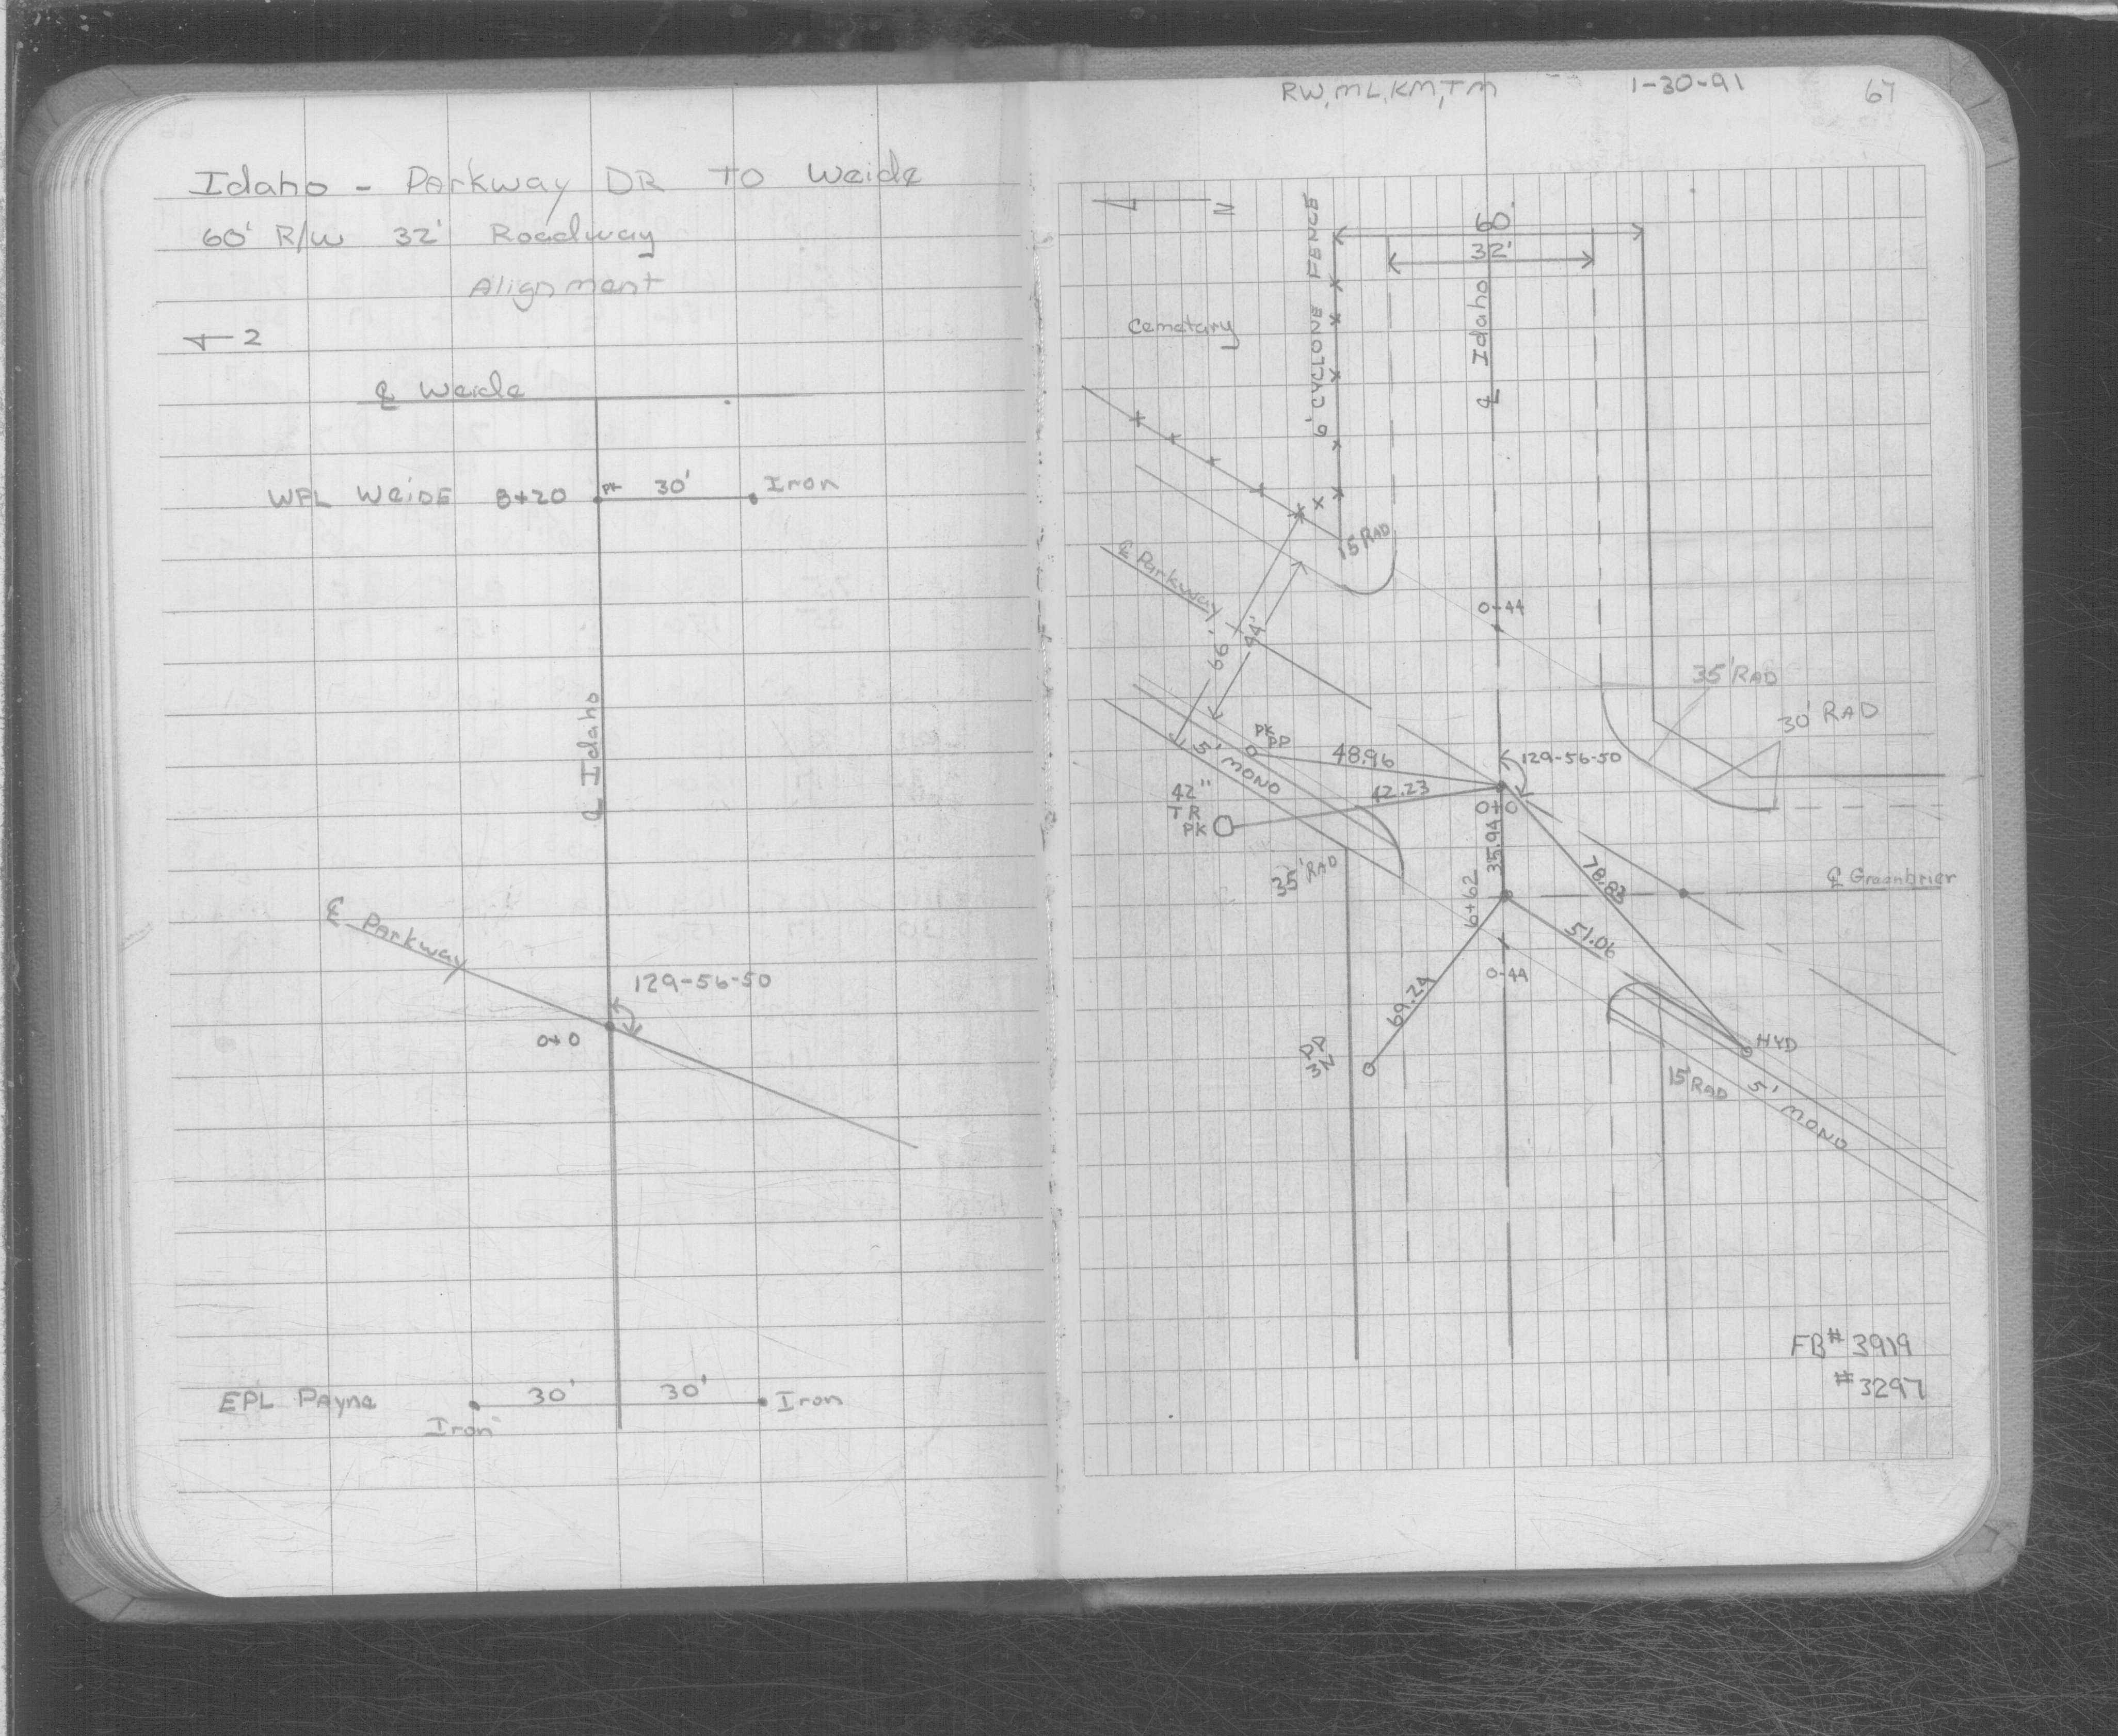 Idaho - Parkway DR TO Weide
60' R/W 32' Roadway
Alignment
N
℄ Weide
WPL WEIDE 8+20 PK 30' Iron
℄ Idaho
℄ Parkway
129-56-50
0+0
EPL Payne 30' 30' Iron
Iron
RW, ML, KM, TM 1-30-91 67
N
60'
32'
6' CYCLONE FENCE
℄ Idaho
Cemetary
15' RAD
℄ Parkway
0-44
66'
44'
35' RAD
30' RAD
PK
PP
5' MONO
48.96
129-56-50
42"
TR
PK
42.23
0+0
35.94
35' RAD
78.83
℄ Greenbrier
6+62
51.06
0-44
69.24
PP
3N
HYD
15' RAD
5' MONO
FB# 3919
#3297